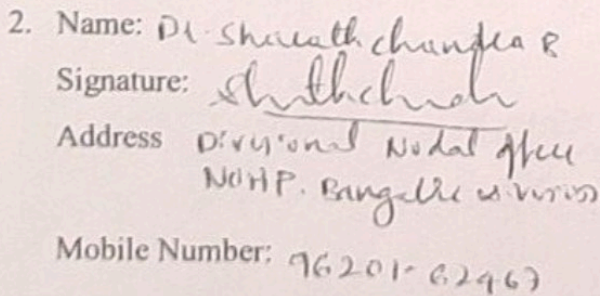 2. Name: Dr. Sharath chandra B
Signature:
Address Divisional Nodal office
NOHP. Bangalore division
Mobile Number: 96201-62467